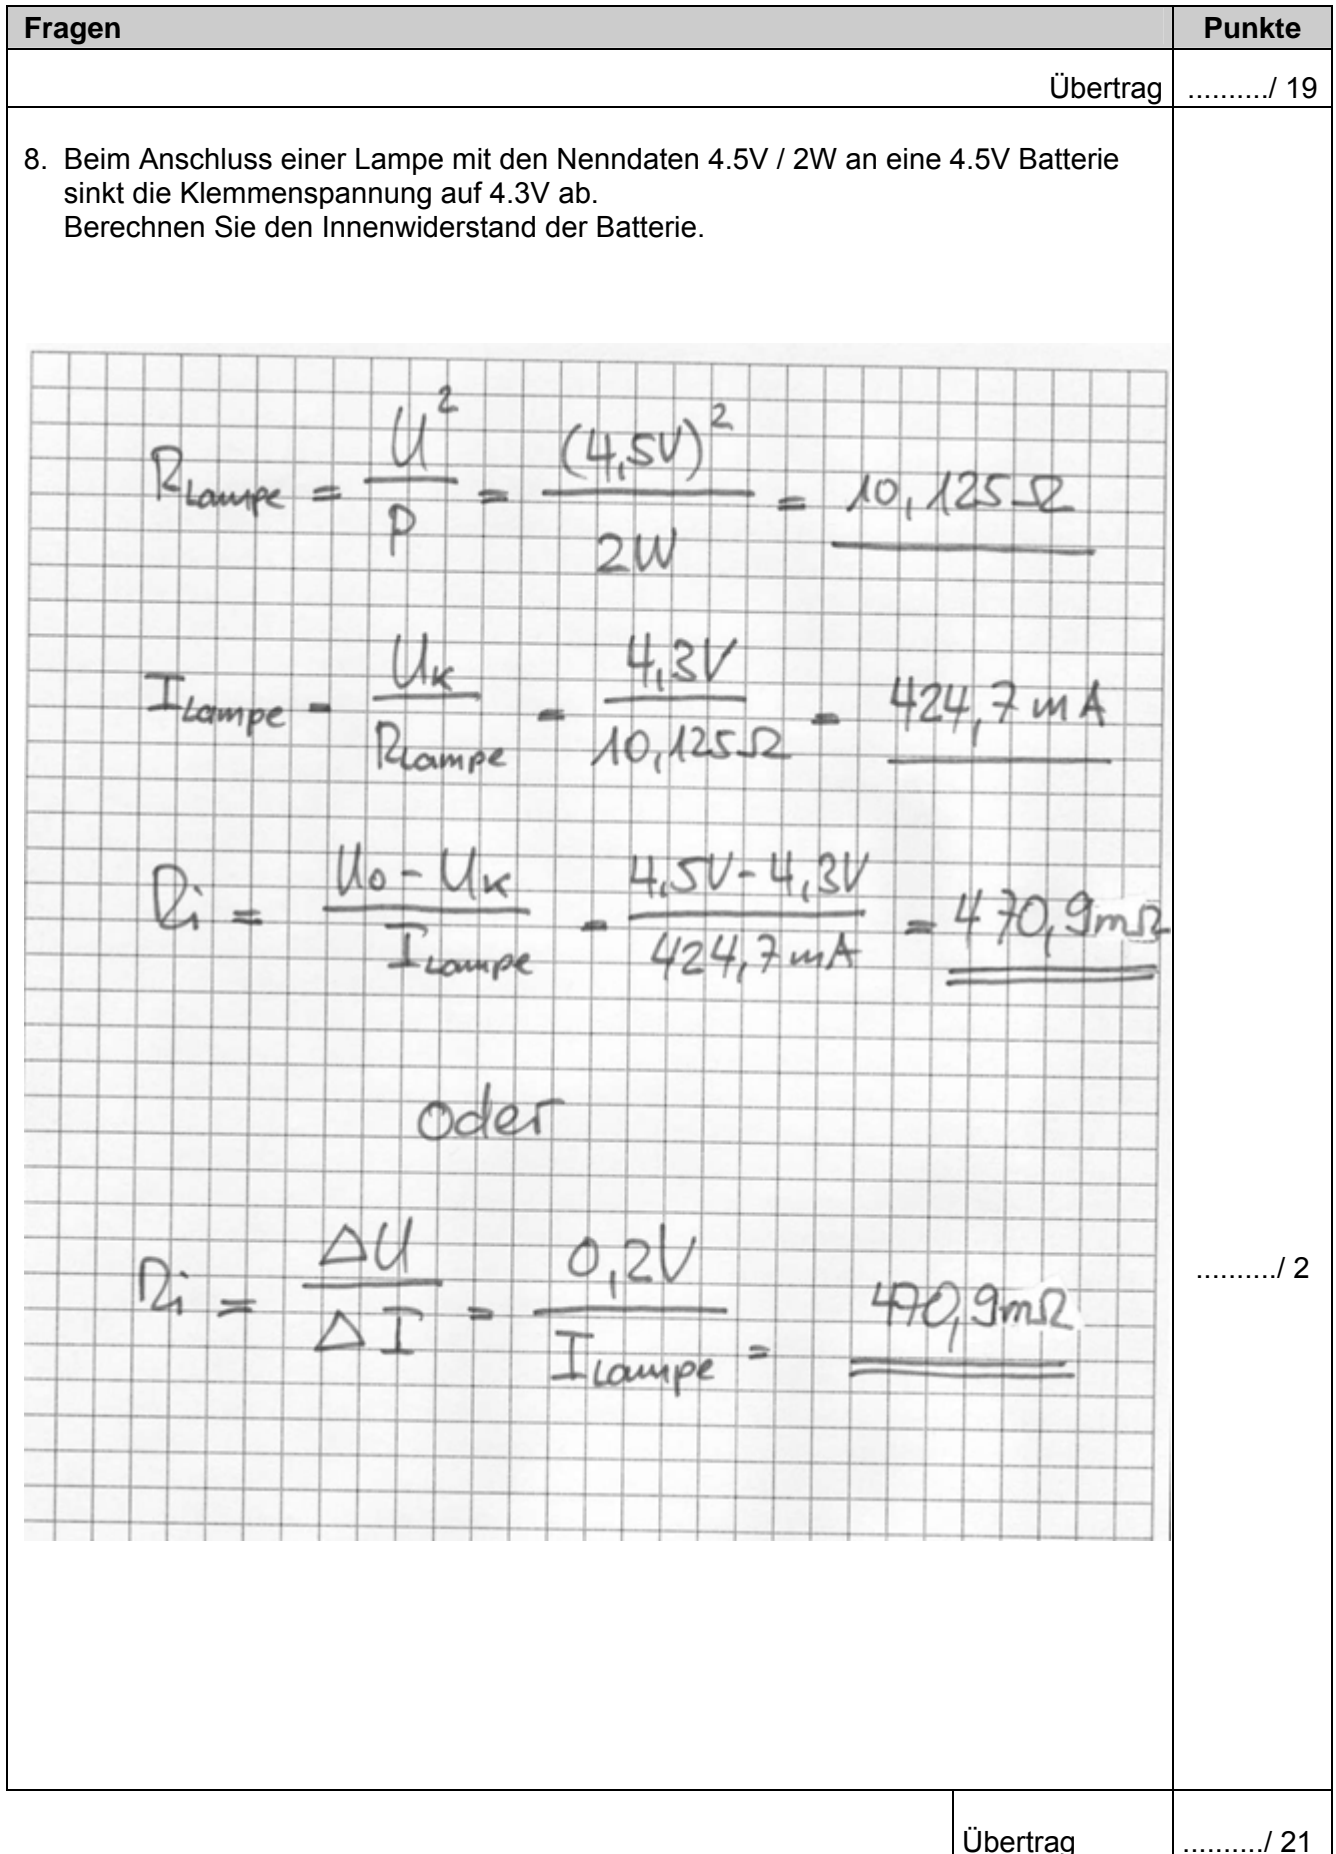 Fragen Punkte
Übertrag ........../ 19
8. Beim Anschluss einer Lampe mit den Nenndaten 4.5V / 2W an eine 4.5V Batterie
sinkt die Klemmenspannung auf 4.3V ab.
Berechnen Sie den Innenwiderstand der Batterie.
R_Lampe = U² / P = (4,5V)² / 2W = 10,125Ω
I_Lampe = U_K / R_Lampe = 4,3V / 10,125Ω = 424,7mA
Ri = U₀ - U_K / I_Lampe = 4,5V - 4,3V / 424,7mA = 470,9mΩ
oder
Ri = ΔU / ΔI = 0,2V / I_Lampe = 470,9mΩ
........../ 2
Übertrag ........../ 21